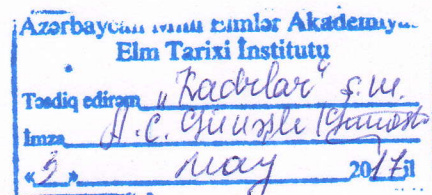 Azərbaycan Milli Elmlər Akademiyası
Elm Tarixi İnstitutu
Təsdiq edirəm "Kadrlar" ş.m.
İmza
«2» may 2017 il